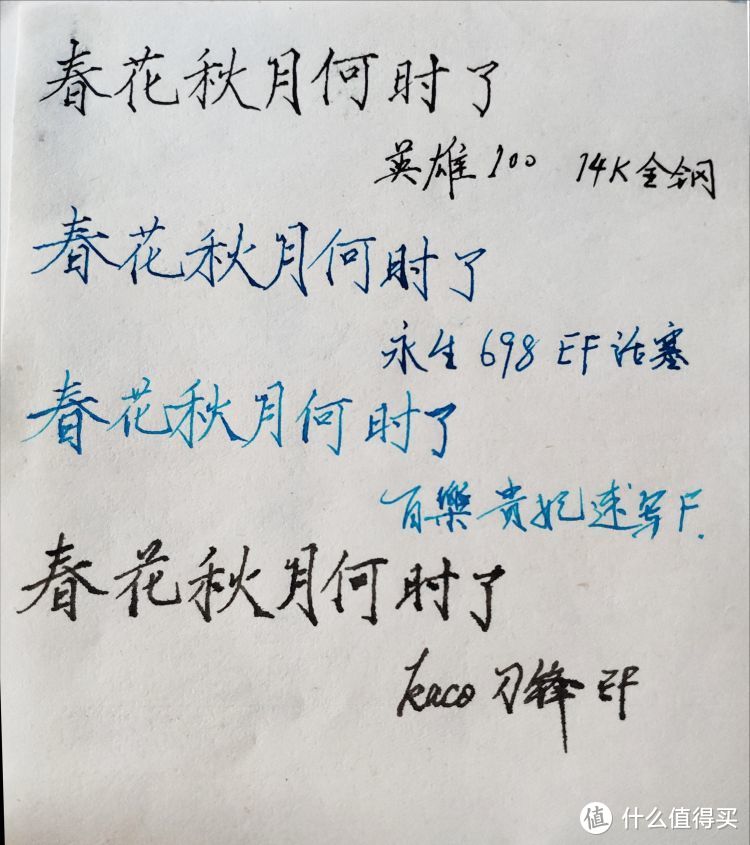 春花秋月何时了
英雄100 14K全钢
春花秋月何时了
永生698 EF活塞
春花秋月何时了
百樂贵妃速写F.
春花秋月何时了
kaco刃锋EF
值 什么值得买